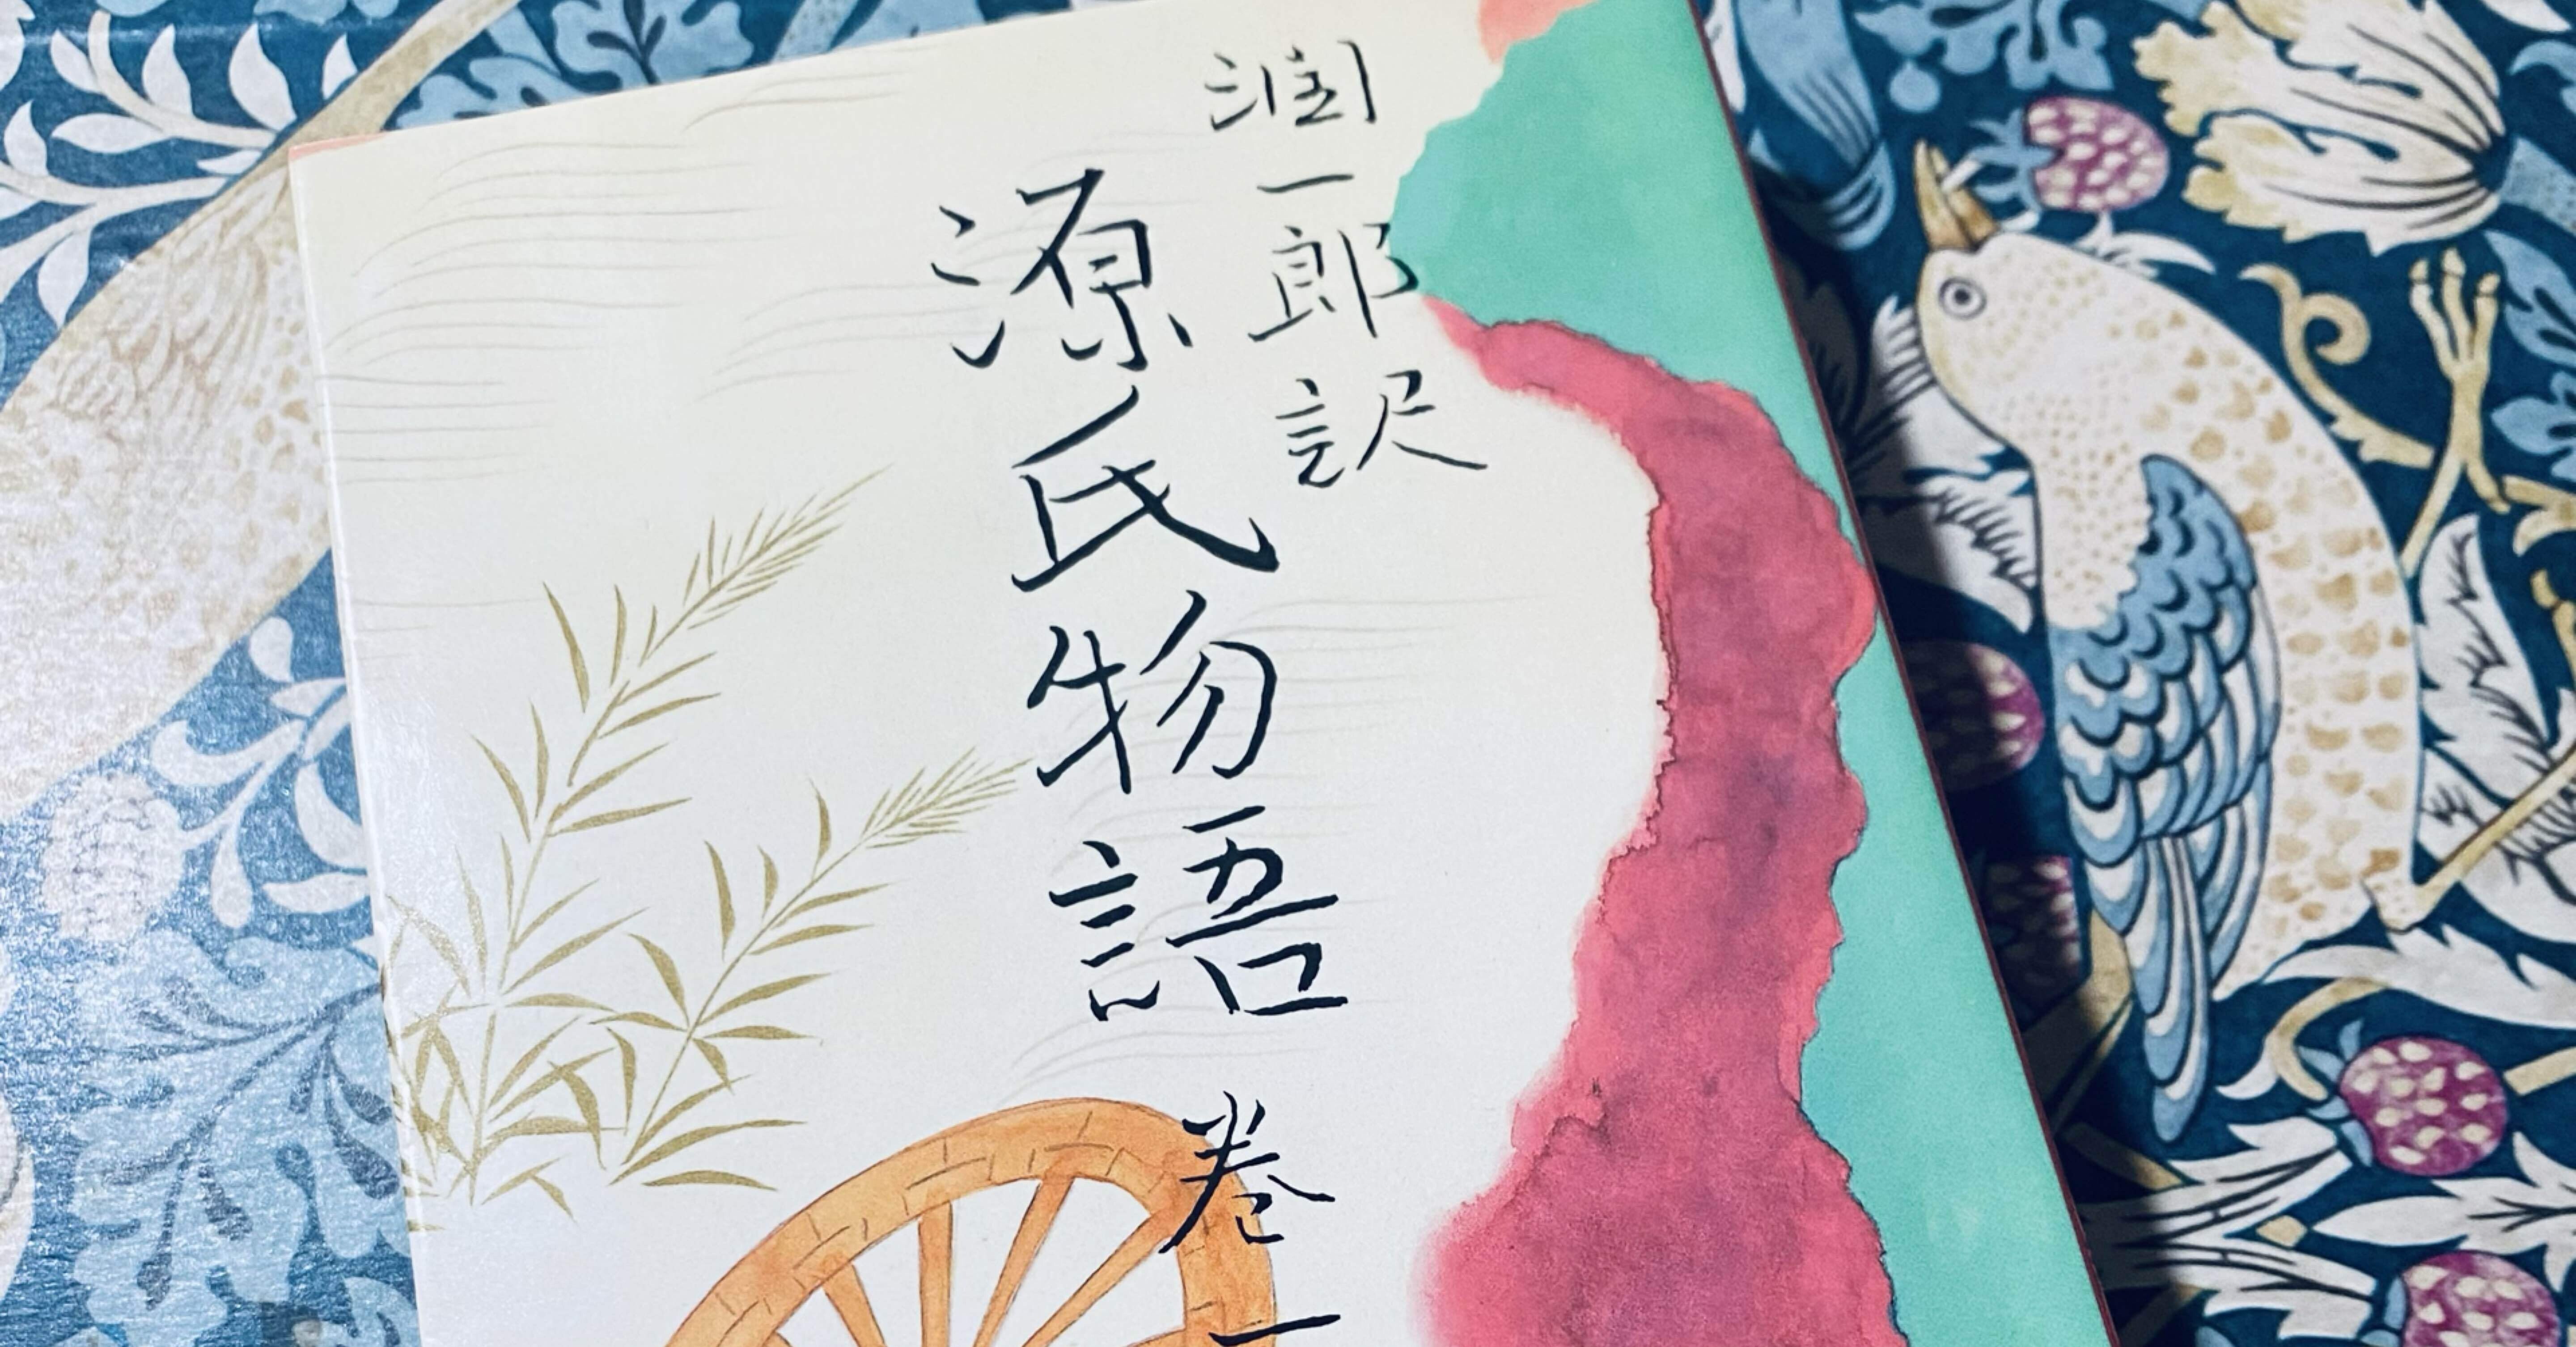 潤一郎訳
源氏物語 巻一